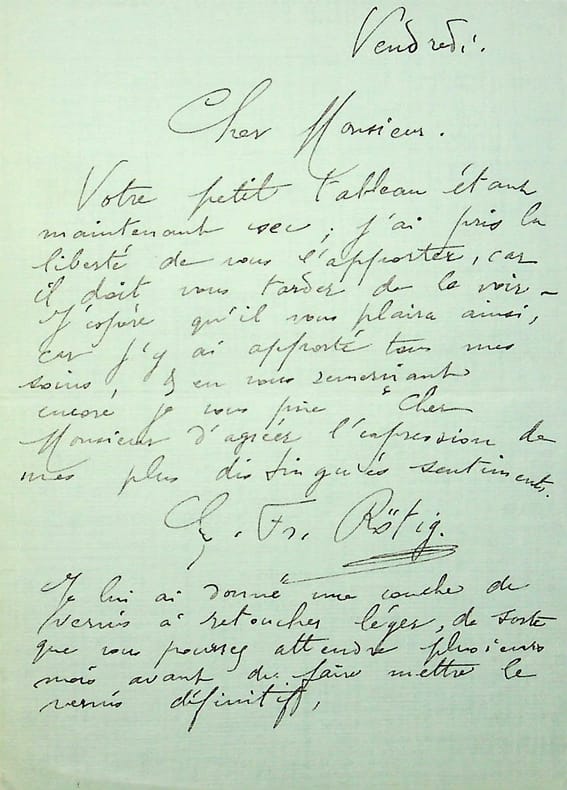 Vendredi.
Cher Monsieur.
Votre petit tableau étant
maintenant sec, j'ai pris la
liberté de vous l'apporter, car
il doit vous tarder de le voir –
J'espère qu'il vous plaira ainsi,
car j'y ai apporté tous mes
soins, & en vous remerciant
encore je vous prie Cher
Monsieur d'agréer l'expression de
mes plus distingués sentiments.
G. Fr. Rötig.
Je lui ai donné une couche de
vernis à retoucher léger, de sorte
que vous pourrez attendre plusieurs
mois avant de faire mettre le
vernis définitif,